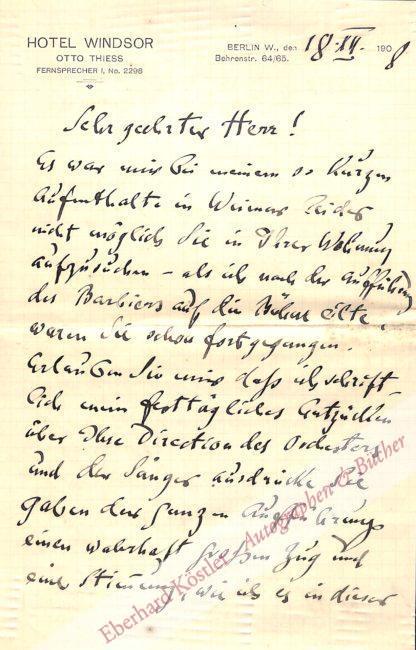 HOTEL WINDSOR
OTTO THIESS
FERNSPRECHER I, No. 2298
BERLIN W., den 18.IV. 1908
Behrenstr. 64/65.
Sehr geehrter Herr!
Es war mir bei meinem so kurzen
Aufenthalte in Weimar leider
nicht möglich Sie in Ihrer Wohnung
aufzusuchen – als ich nach der Aufführung
des Barbiers auf die Bühne eilte,
waren Sie schon fortgegangen.
Erlauben Sie mir daß ich schrift-
lich mein Entzücken
über Ihre Direction des Orchesters
und der Sänger ausdrücke. Sie
gaben der ganzen Aufführung
einen wahrhaft großen Zug und
eine Stimmung, wie ich es in dieser
Eberhard Köstler Autographen & Bücher